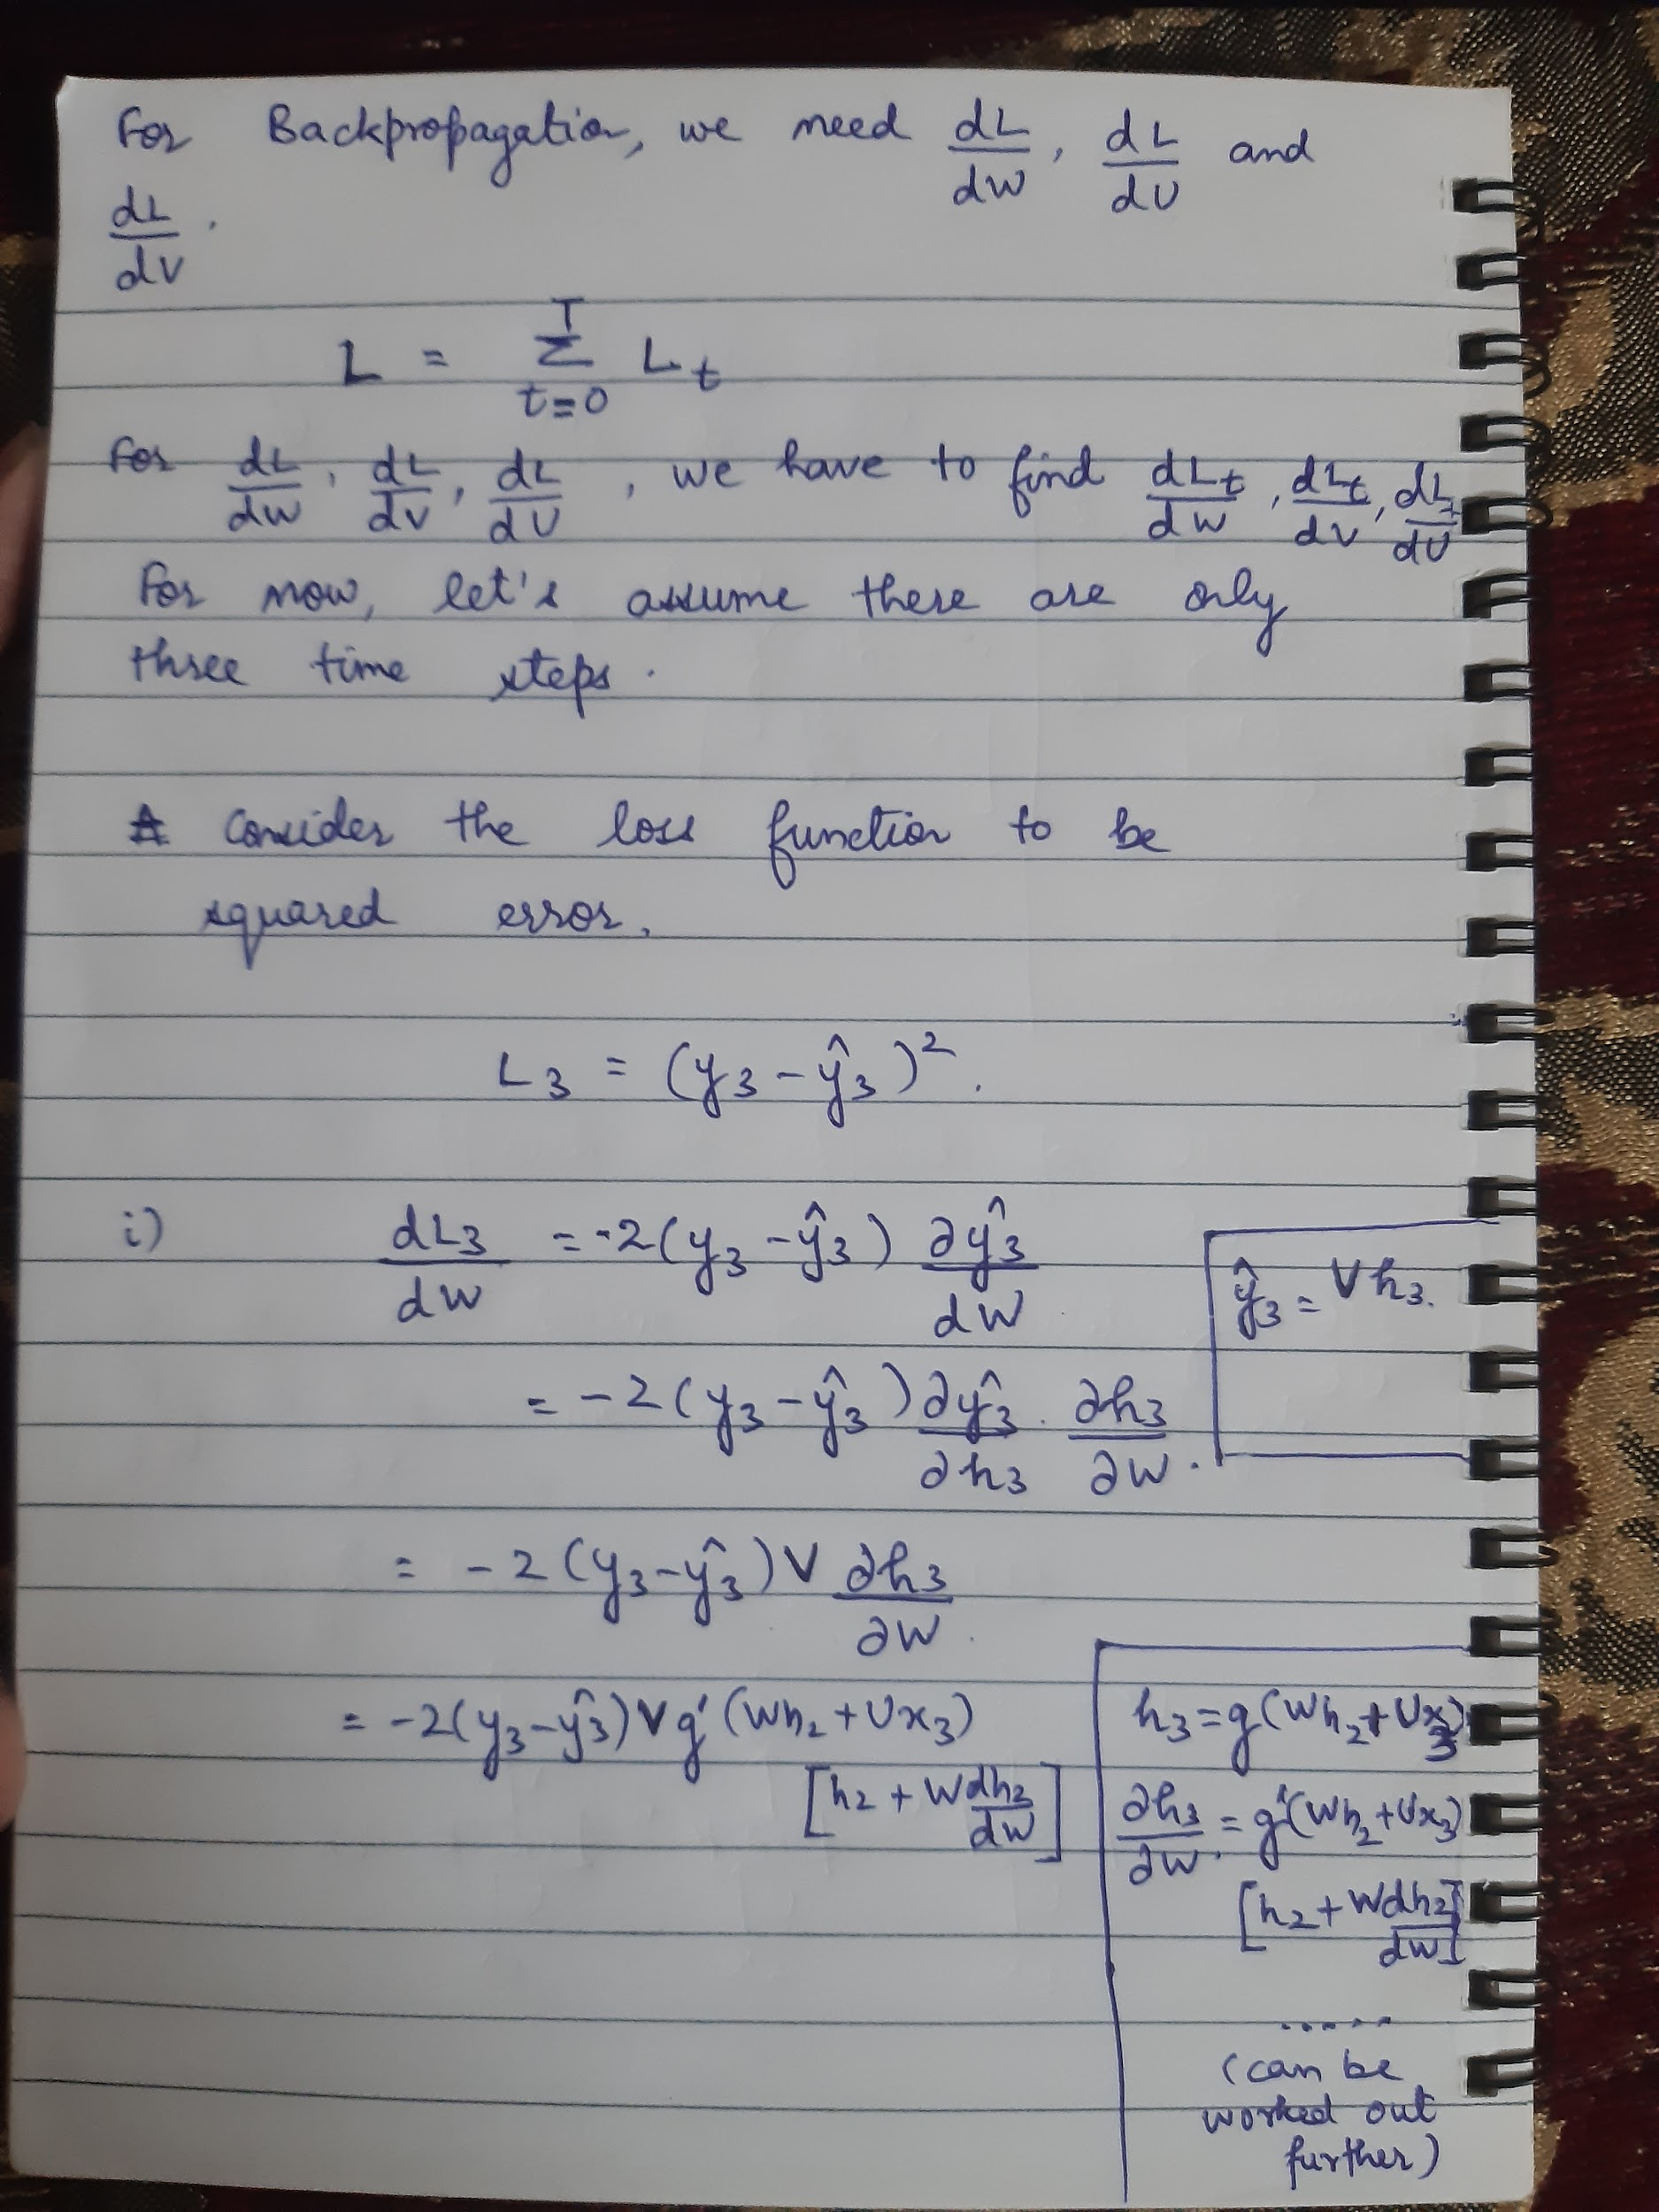 For Backpropagation, we need dL/dW, dL/dU and
dL/dV.
L = Σ_{t=0}^{T} L_t
For dL/dW, dL/dV, dL/dU, we have to find dL_t/dW, dL_t/dV, dL_t/dU
For now, let's assume there are only
three time steps.
Consider the loss function to be
squared error.
L_3 = (y_3 - ŷ_3)^2.
i) dL_3/dW = -2(y_3 - ŷ_3) ∂ŷ_3/dW
ŷ_3 = Vh_3.
= -2(y_3 - ŷ_3) ∂ŷ_3/∂h_3 . ∂h_3/∂W.
= -2(y_3 - ŷ_3) V ∂h_3/∂W.
= -2(y_3 - ŷ_3) V g'(Wh_2 + Ux_3)
[h_2 + W dh_2/dW]
h_3 = g(Wh_2 + Ux_3)
∂h_3/∂W. = g'(Wh_2 + Ux_3)
[h_2 + W dh_2/dW]
.....
(can be
worked out
further)